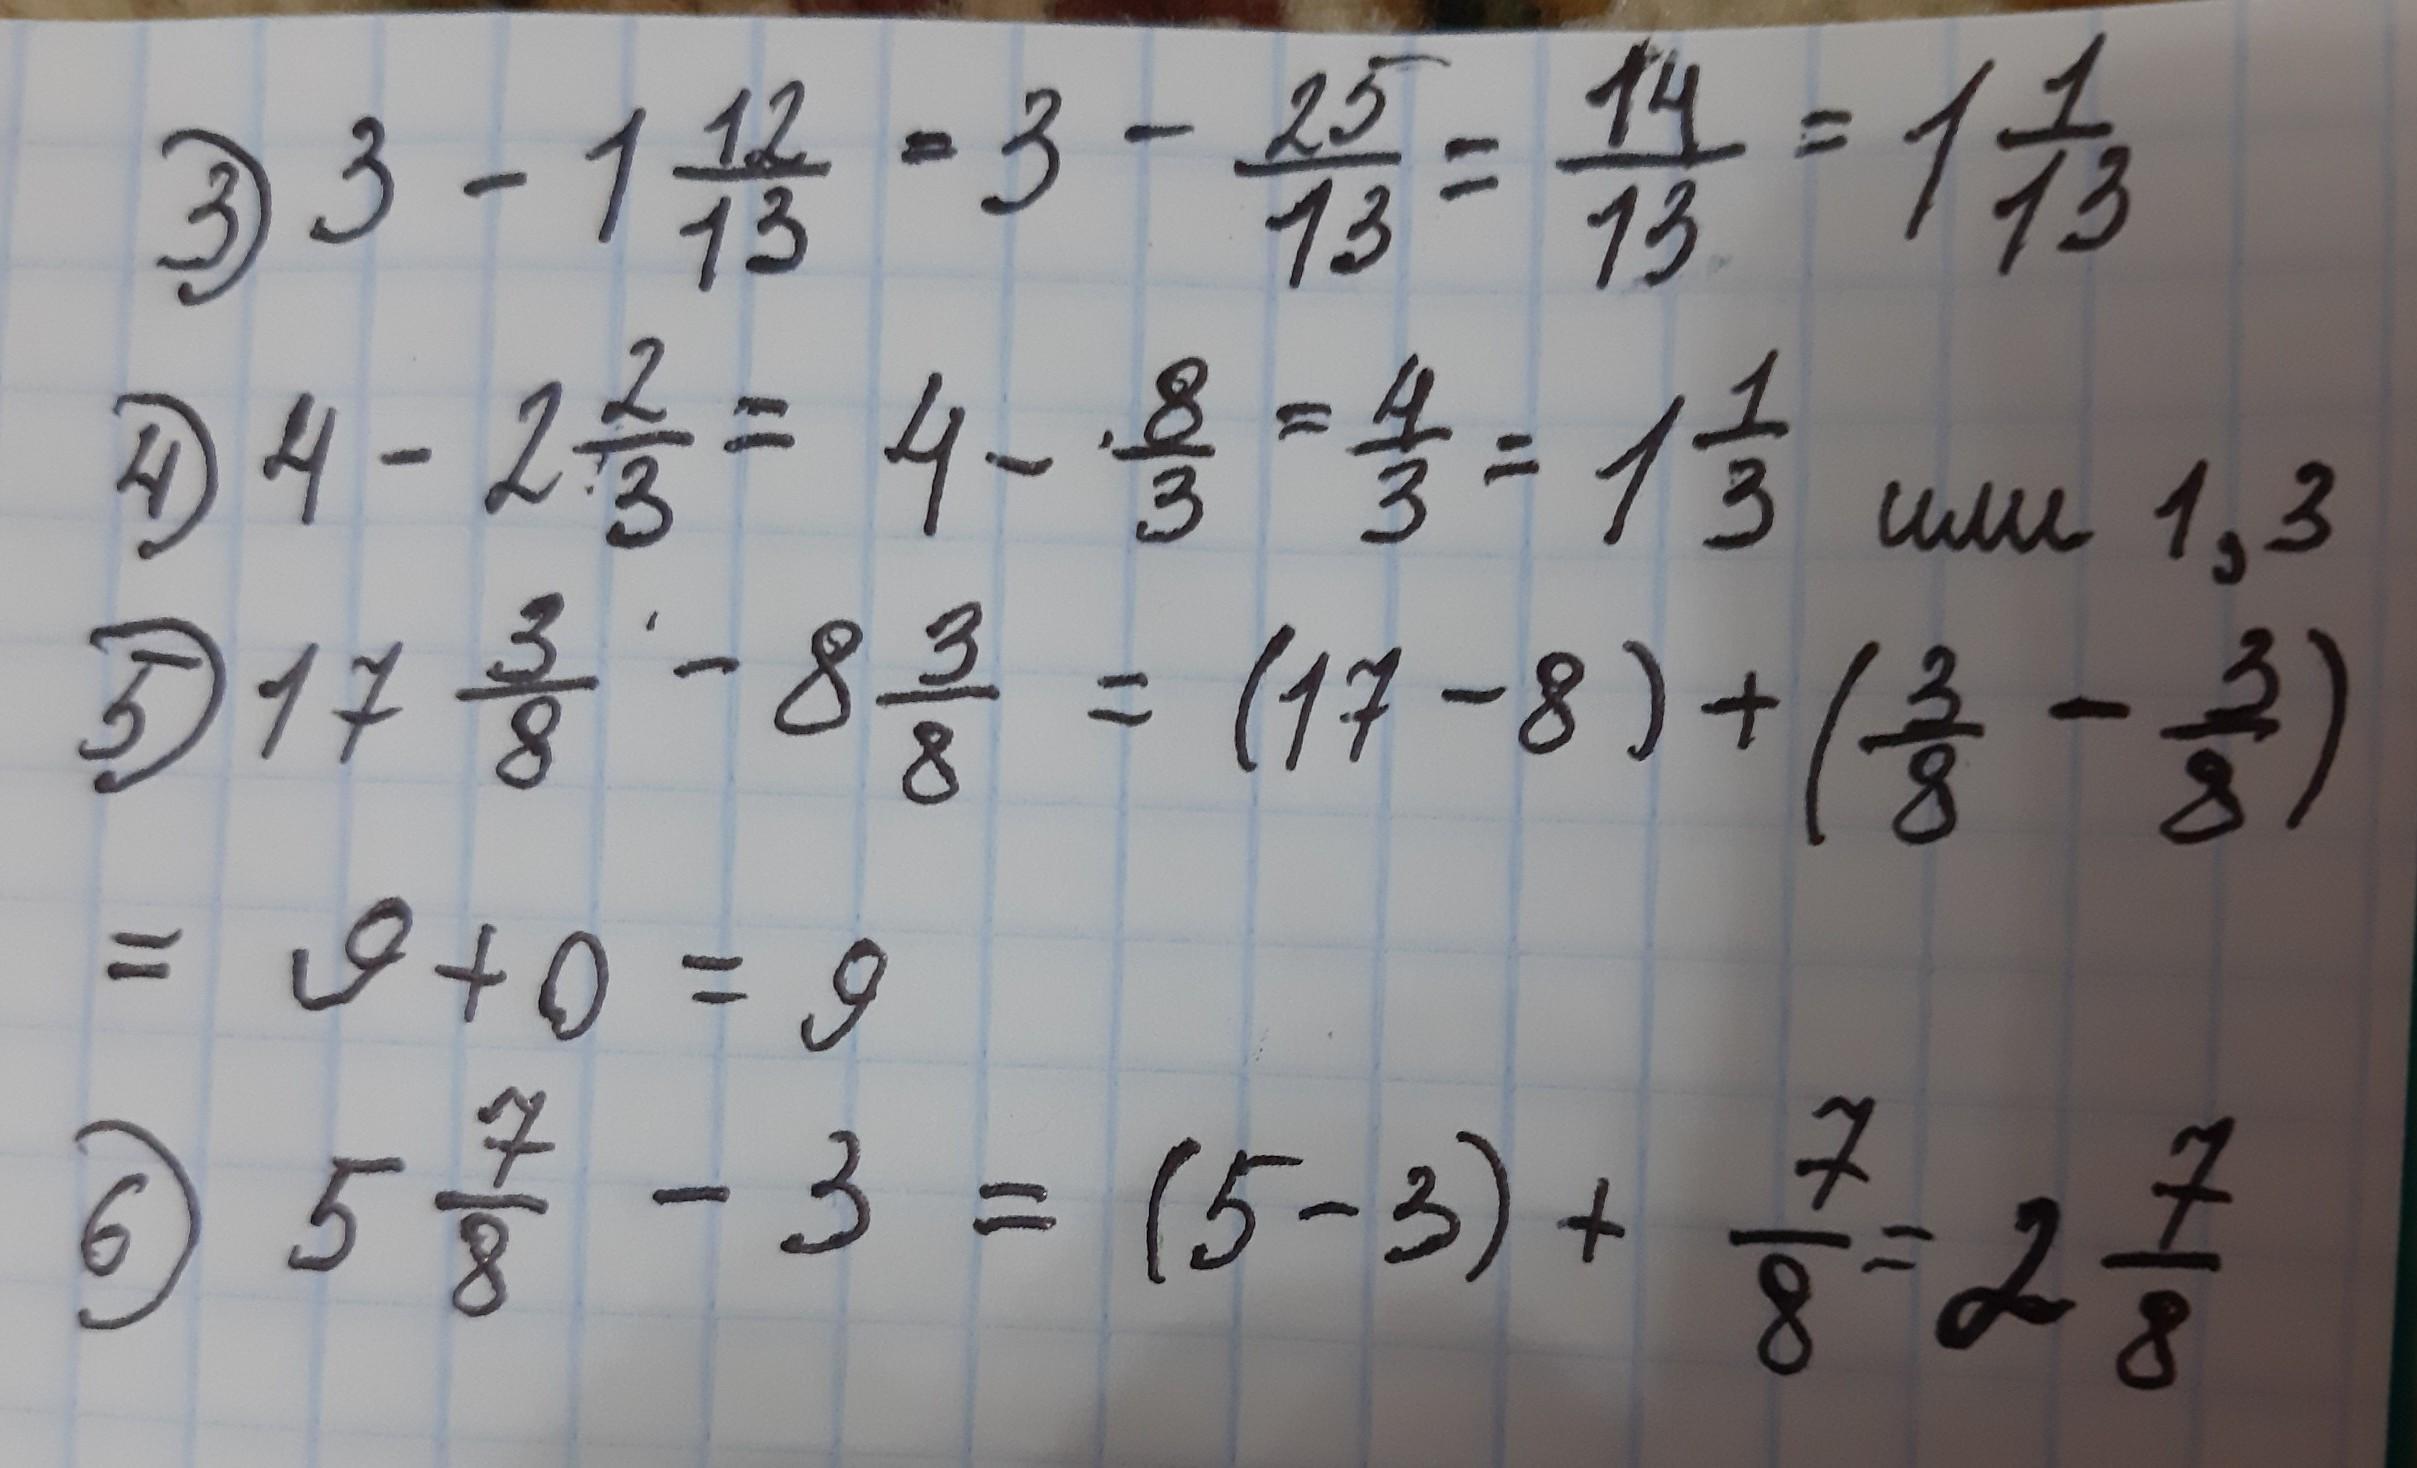 3) 3 - 1 12/13 = 3 - 25/13 = 14/13 = 1 1/13
4) 4 - 2 2/3 = 4 - 8/3 = 4/3 = 1 1/3 или 1,3
5) 17 3/8 - 8 3/8 = (17 - 8) + (3/8 - 3/8)
= 9 + 0 = 9
6) 5 7/8 - 3 = (5 - 3) + 7/8 = 2 7/8